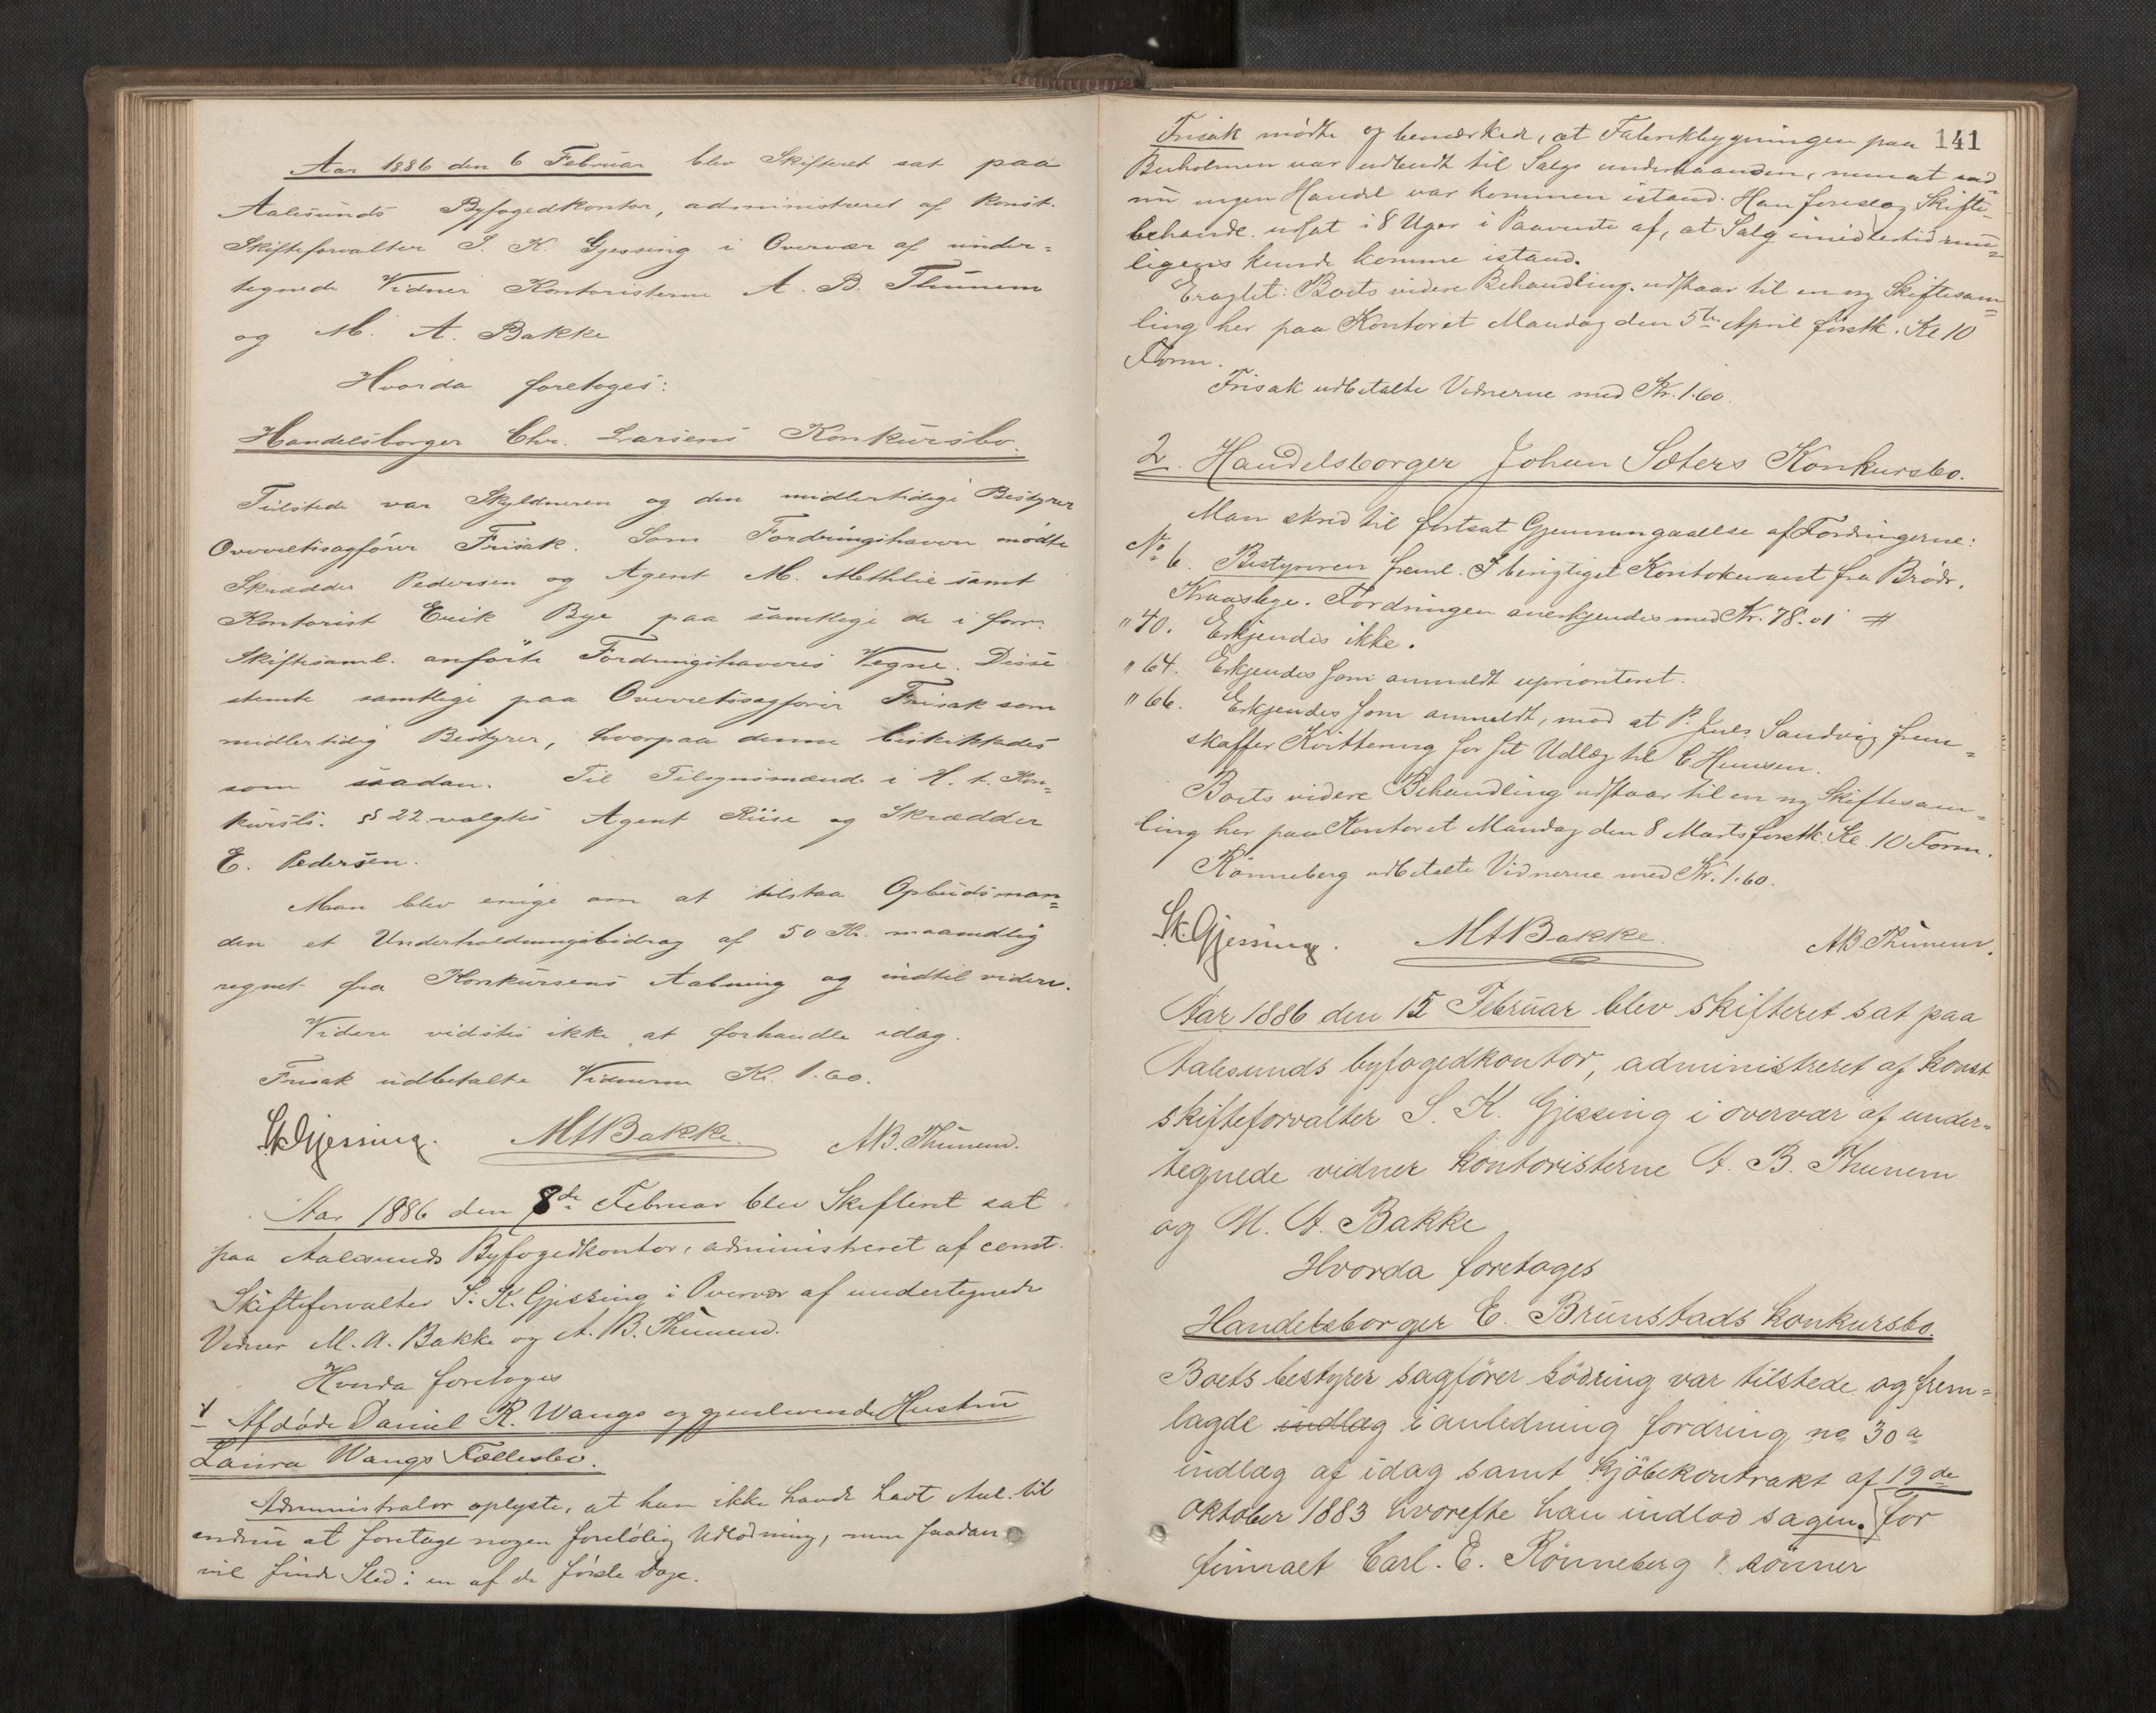 Aar 1886 den 6 Februar blev Skifteret sat paa
Aalesunds Byfogedkontor, administreret af konst.
Skifteforvalter S. K. Gjessing i Overvær af under=
tegnede Vidner Kontoristerne A. B. Thunem
og M. A. Bakke
Hvorda foretoges:
Handelsborger Chr. Larsens Konkursbo.
Tilstede var Skyldneren og den midlertidige Bestyrer
Overretssagfører Frisak. Som Fordringshavere mødte
Skrædder Pedersen og Agent M. Methlie samt
Kontorist Erik Bye paa samtlige de i forr.
Skiftesaml. anførte Fordringshaveres Vegne. Disse
stemte samtlige paa Overretssagfører Frisak som
midlertidig Bestyrer, hvorpaa denne beskikkedes
som saadan. Til Tilsynsmænd i H. t. Kon=
kursls. § 22 valgtes Agent Riise og Skrædder
E. Pedersen.
Man blev enige om at tilstaa Opbudsman=
den et Underholdningsbidrag af 50 Kr. maanedlig
regnet fra Konkursens Aabning og indtil videre.
Videre vidstes ikke at forhandle idag.
Frisak udbetalte Vidnerne Kr. 1.60.
S.K.Gjessing. MABakke. A.B. Thunem.
Aar 1886 den 8de Februar blev Skifteret sat
paa Aalesunds Byfogedkontor, administreret af const.
Skifteforvalter S. K. Gjessing i Overvær af undertegnede
Vidner M. A. Bakke og A. B. Thunem.
Hvorda foretoges
1 Afdøde Daniel R. Wangs og gjenlevende Hustru
Laura Wangs Fællesbo.
Administrator oplyste, at han ikke havde havt Anl. til
endnu at foretage nogen foreløbig Udlodning, men saadan
vil finde Sted i en af de første Dage.
141
Frisak mødte og bemærkede, at Fabrikbygningen paa
Buholmen var udbudt til Salgs underhaanden, men at end
nu ingen Handel var kommen istand. Han foreslog Skifte=
behandl. udsat i 8 Uger i Paavente af, at Salg imidlertid mu=
ligens kunde komme istand.
Eragtet: Boets videre Behandling udstaar til en ny Skiftesam=
ling her paa Kontoret Mandag den 5te April førstk. Kl 10
Form.
Frisak udbetalte Vidnerne med Kr. 1.60.
2. Handelsborger Johan Sæters Konkursbo.
Man skred til fortsat Gjennemgaaelse af Fordringerne:
No 6. Bestyreren freml. I berigtiget Kontokurant fra Brødr.
Kraasbye. Fordringen anerkjendes med Kr. 78.01 #
" 40. Erkjendes ikke.
" 64. Erkjendes som anmeldt uprioriteret.
" 66. Erkjendes som anmeldt, mod at P. Juls Sandvig frem=
skaffer Kvittering for sit Udlæg til E. Hemsen.
Boets videre Behandling udstaar til en ny Skiftesam=
ling her paa Kontoret Mandag den 8 Marts førstk. Kl. 10 Form.
Rønneberg udbetalte Vidnerne med Kr. 1.60.
S.K.Gjessing. MABakke. A.B. Thunem.
Aar 1886 den 15 Februar blev skifteret sat paa
Aalesunds byfogedkontor, administreret af konst
skifteforvalter S. K. Gjessing i overvær af under=
tegnede vidner kontoristerne A. B. Thunem
og M. A. Bakke
Hvorda foretoges
Handelsborger E. Brunstads konkursbo.
Boets bestyrer sagfører Sødring var tilstede og frem=
lagde indlæg i anledning fordring no 30a
indlæg af idag samt kjøbekontrakt af 19de
oktober 1883 hvorefte han indlod sagen. For
firmaet Carl. E. Rönneberg & sönner